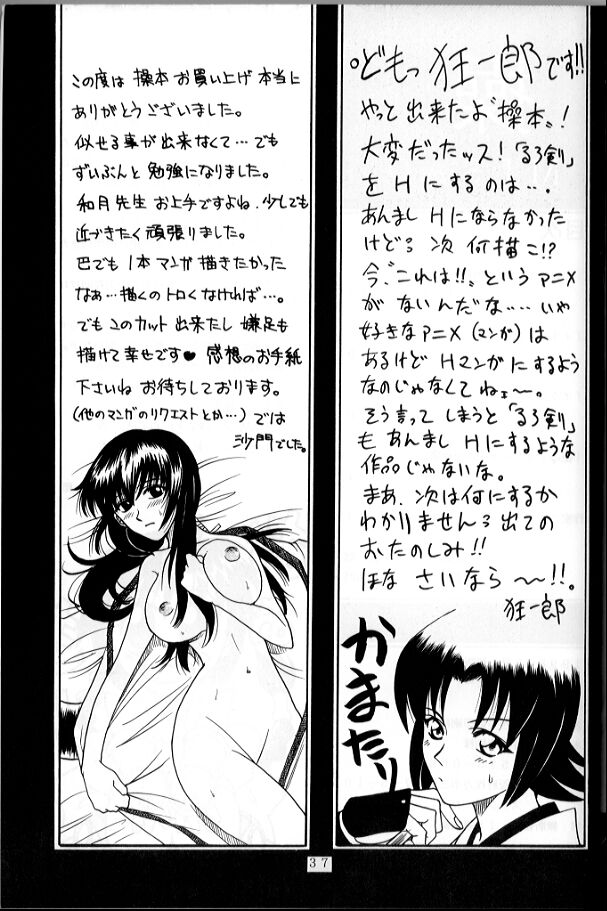 どもっ 狂一郎です!!
やっと出来たよ“操本”!
大変だったッス!「るろ剣」
をHにするのは…。
あんましHにならなかった
けど 次何描こ!?
今、“これは!!”というアニメ
がないんだな……いや
好きなアニメ(マンガ)は
あるけどHマンガにするよう
なのじゃなくてねェ〜。
そう言ってしまうと「るろ剣」
もあんましHにするような
作品じゃないな。
まあ、次は何にするか
わかりません 出ての
おたのしみ!!
ほな さいなら〜!!。
狂一郎
かまたり
この度は 操本 お買い上げ 本当に
ありがとうございました。
似せる事が出来なくて…でも
ずいぶんと勉強になりました。
和月先生 お上手ですよね、少しでも
近づきたく頑張りました。
巴でも1本マンガ描きたかった
なぁ…描くのトロくなければ…。
でもこのカット出来たし 嫌足も
描けて幸せです♥ 感想のお手紙
下さいね お待ちしております。
(他のマンガのリクエストとか…)では
沙門でした。
37